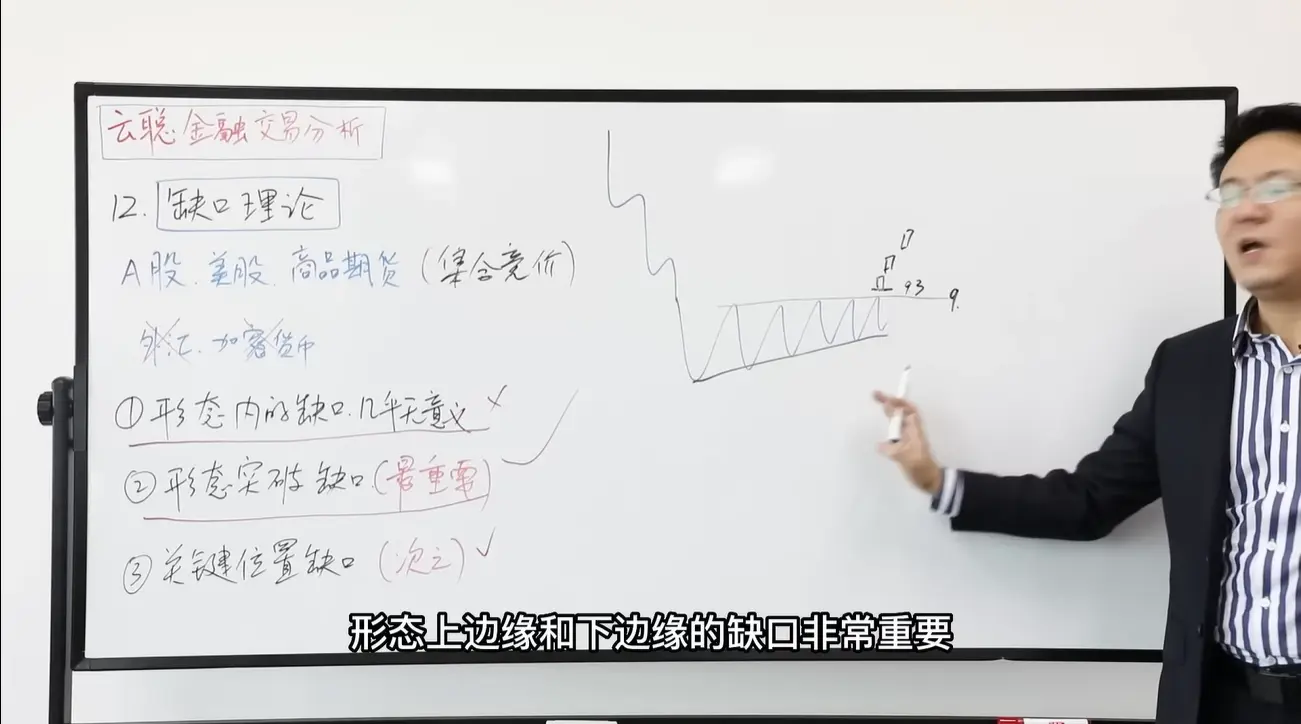 云聪金融交易分析
12. 缺口理论
A股、美股、商品期货(集合竞价)
外汇、加密货币
①形态内的缺口,几乎无意义 ×
②形态突破缺口(最重要) ✓
③关键位置缺口(次之) ✓
93
9.
形态上边缘和下边缘的缺口非常重要